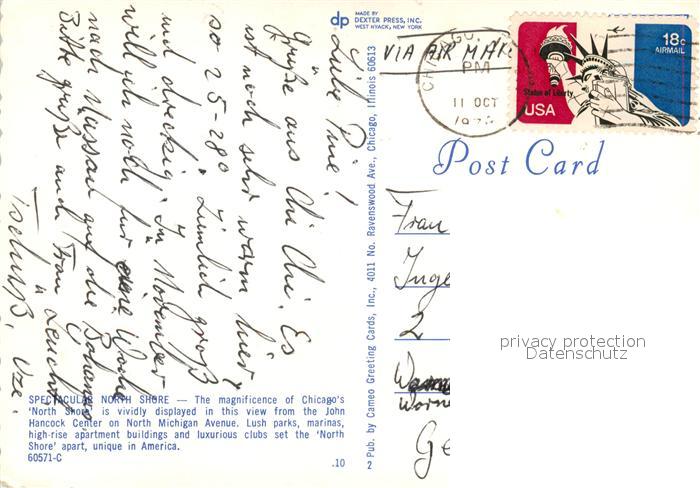 dp MADE BY
DEXTER PRESS, INC.
WEST NYACK, NEW YORK
VIA AIR MAIL
CHICAGO, IL
PM
11 OCT
18c
AIRMAIL
Statue of Liberty
USA
Post Card
Liebe Pine!
Grüße aus Chi Chi. Es
ist noch sehr warm hier,
so 25-28°. Ziemlich groß
und dreckig. Im November
will ich noch für eine Woche
nach Nassau auf die Bahamas
Bitte grüße auch Frau
Tschüß,
Frau
Inge
2
Worm
Ge
privacy protection
Datenschutz
2 Pub. by Cameo Greeting Cards, Inc., 4011 No. Ravenswood Ave., Chicago, Illinois 60613
SPECTACULAR NORTH SHORE — The magnificence of Chicago's
'North Shore' is vividly displayed in this view from the John
Hancock Center on North Michigan Avenue. Lush parks, marinas,
high-rise apartment buildings and luxurious clubs set the 'North
Shore' apart, unique in America.
60571-C
.10